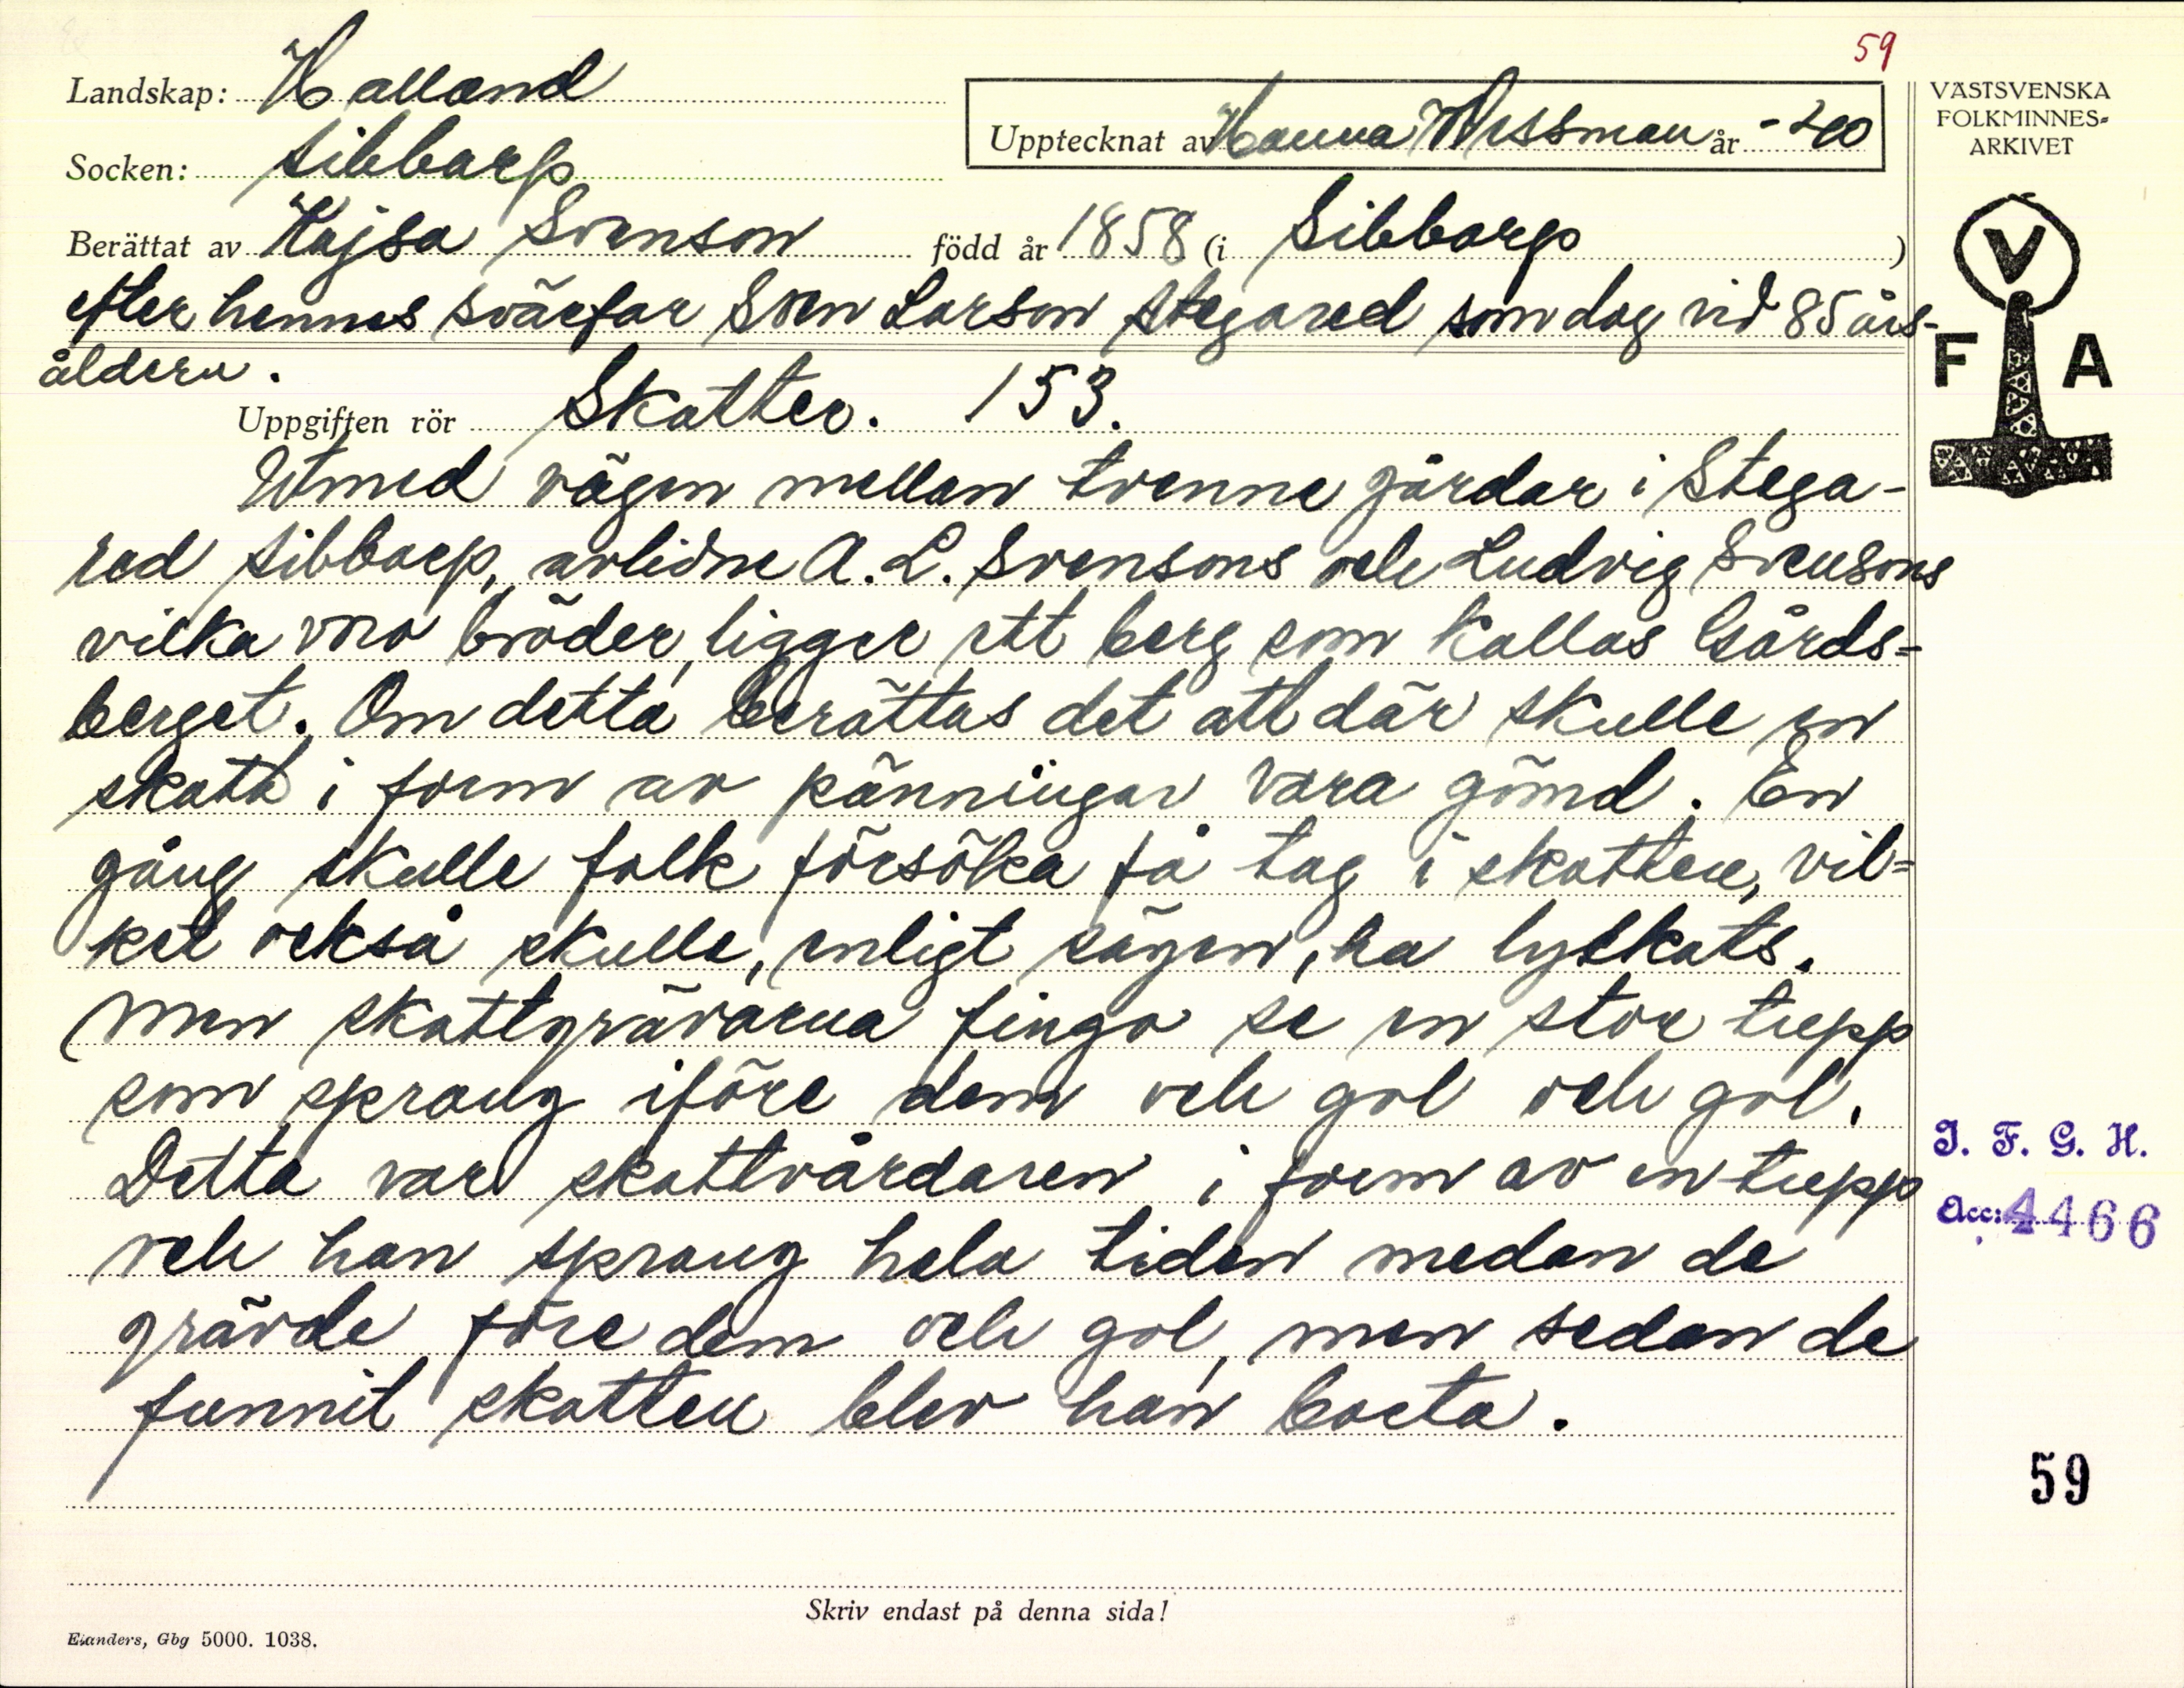 59
Landskap: Halland
Upptecknat av Hanna Wessman år -40
VÄSTSVENSKA
FOLKMINNES-
ARKIVET
Socken: Sibbarp
Berättat av Kajsa Svenson född år 1858 (i Sibbarp)
efter hennes svärfar Sven Larson Stegared som dog vid 85 års-
åldern.
V
F A
Uppgiften rör Skatter. 153.
Utmed vägen mellan tvenne gårdar i Stega-
red Sibbarp, avlidne A. L. Svensons och Ludvig Svensons
vilka voro bröder, ligger ett berg som kallas Gårds-
berget. Om detta berättas det att där skulle en
skatt i form av pänningar vara gömd. En
gång skulle folk försöka få tag i skatten, vil-
ket också skulle, enligt sägen, ha lyckats.
Men skattgrävarna fingo se en stor tupp
som sprang iföre dem och gol och gol.
Detta var skattvårdaren i form av en tupp
och han sprang hela tiden medan de
grävde före dem och gol, men sedan de
funnit skatten blev han borta.
I. F. G. H.
Acc: 4466
59
Skriv endast på denna sida!
Elanders, Gbg 5000. 1038.